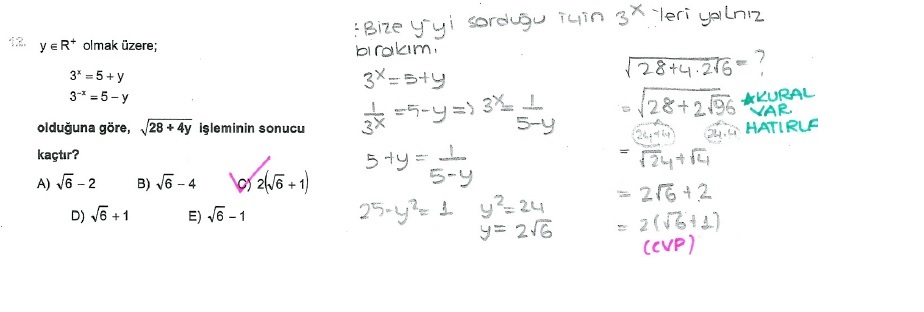 12. y ∈ R⁺ olmak üzere;
3ˣ = 5 + y
3⁻ˣ = 5 − y
olduğuna göre, √(28 + 4y) işleminin sonucu
kaçtır?
A) √6 − 2 B) √6 − 4 C) 2(√6 + 1)
D) √6 + 1 E) √6 − 1
:Bize y'yi sorduğu için 3ˣ 'leri yalnız
bırakım.
3ˣ = 5+y
1/3ˣ = 5-y => 3ˣ = 1/(5-y)
5+y = 1/(5-y)
25-y² = 1 y² = 24
y = 2√6
√(28+4.2√6) = ?
= √(28+2√96) ★KURAL
VAR
HATIRLA
24+4 24.4
= √24+√4
= 2√6+2
= 2(√6+1)
(CVP)